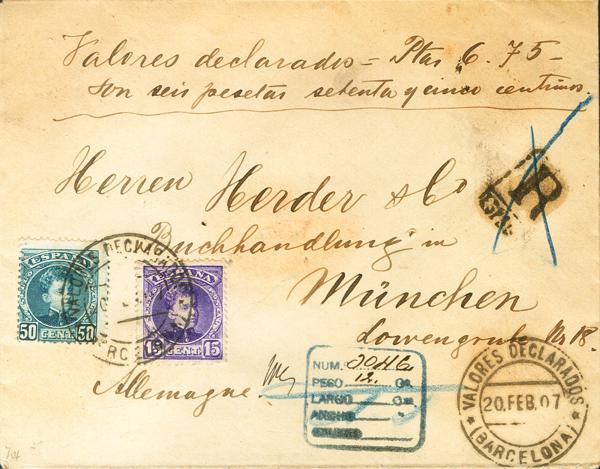 Valores declarados = Ptas 6.75 -
Son seis pesetas setenta y cinco centimos.
Herren Herder & Co
Buchhandlung in
München
Lowengrube No 18.
Allemagne
R
ESPAÑA
50 CENT. 50
ESPAÑA
15 CENT. 15
VALORES DECLARADOS
NUM.
PESO 12. Gs
LARGO
ANCHO
VALORES DECLARADOS
20.FEB.07
(BARCELONA)